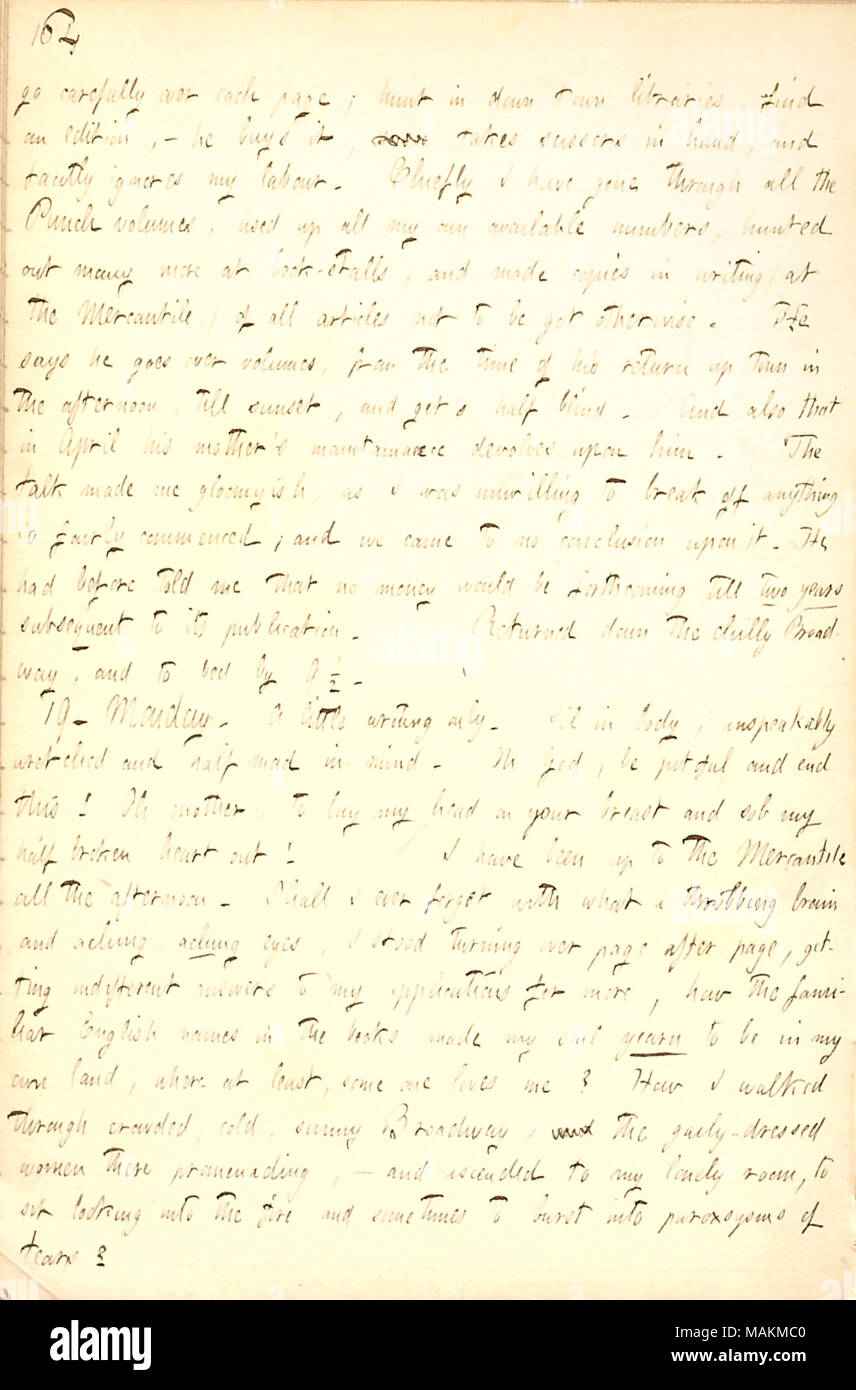 164
go carefully over each page; hunt in down town libraries, find
an edition, — he buys it, takes scissors in hand, and
tacitly ignores my labour. Chiefly I have gone through all the
Punch volumes, used up all my own available numbers, hunted
out many more at book-stalls, and made copies in writing, at
the Mercantile, of all articles not to be got otherwise. He
says he goes over volumes, from the time of his return up town in
the afternoon, till sunset, and get's half blind. And also that
in April his mother's maintainance devolves upon him. The
talk made me gloomyish, as I was unwilling to break off anything
so fairly commenced, and we came to no conclusion upon it. He
had before told me that no money would be forthcoming till two years
subsequent to its publication. Returned down the chilly Broad-
way, and to bed by 9 1/2.
19. Monday. A little writing only. Ill in body, unspeakably
wretched and half mad in mind. Oh God, be pitiful and end
this! Oh mother, to lay my head on your breast and sob my
half broken heart out! I have been up to the Mercantile
all the afternoon. Shall I ever forget with what a throbbing brain
and aching, aching eyes, I stood turning over page after page, get-
ting indifferent answers to my applications for more, how the fami-
liar English names in the books made my soul yearn to be in my
own land, where at least, some one loves me? How I walked
through crowded, cold, sunny Broadway, the gaily-dressed
women there promenading, — and ascended to my lonely room, to
sit looking into the fire and sometimes to burst into paroxsysms of
tears?
alamy
Image ID: MAKMC0
www.alamy.com